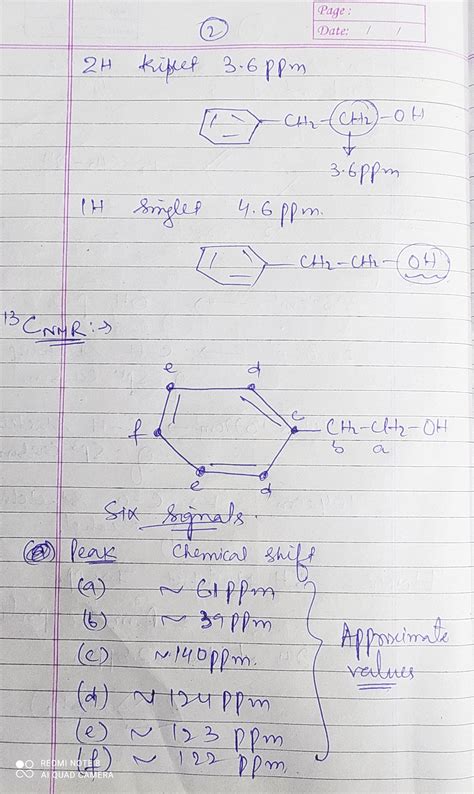 Page :
Date: / /
2
2H triplet 3.6 ppm
CH2 - CH2 - OH
3.6ppm
1H singlet 4.6 ppm.
CH2-CH2-OH
13CNMR:→
e d
f c CH2-CH2-OH
b a
e d
Six signals.
Peak Chemical shift
(a) ~ 61 ppm
(b) ~ 39 ppm
(c) ~140ppm.
(d) ~ 124 ppm
(e) ~ 123 ppm
(f) ~ 122 ppm.
Approximate
values
REDMI NOTE 8
AI QUAD CAMERA